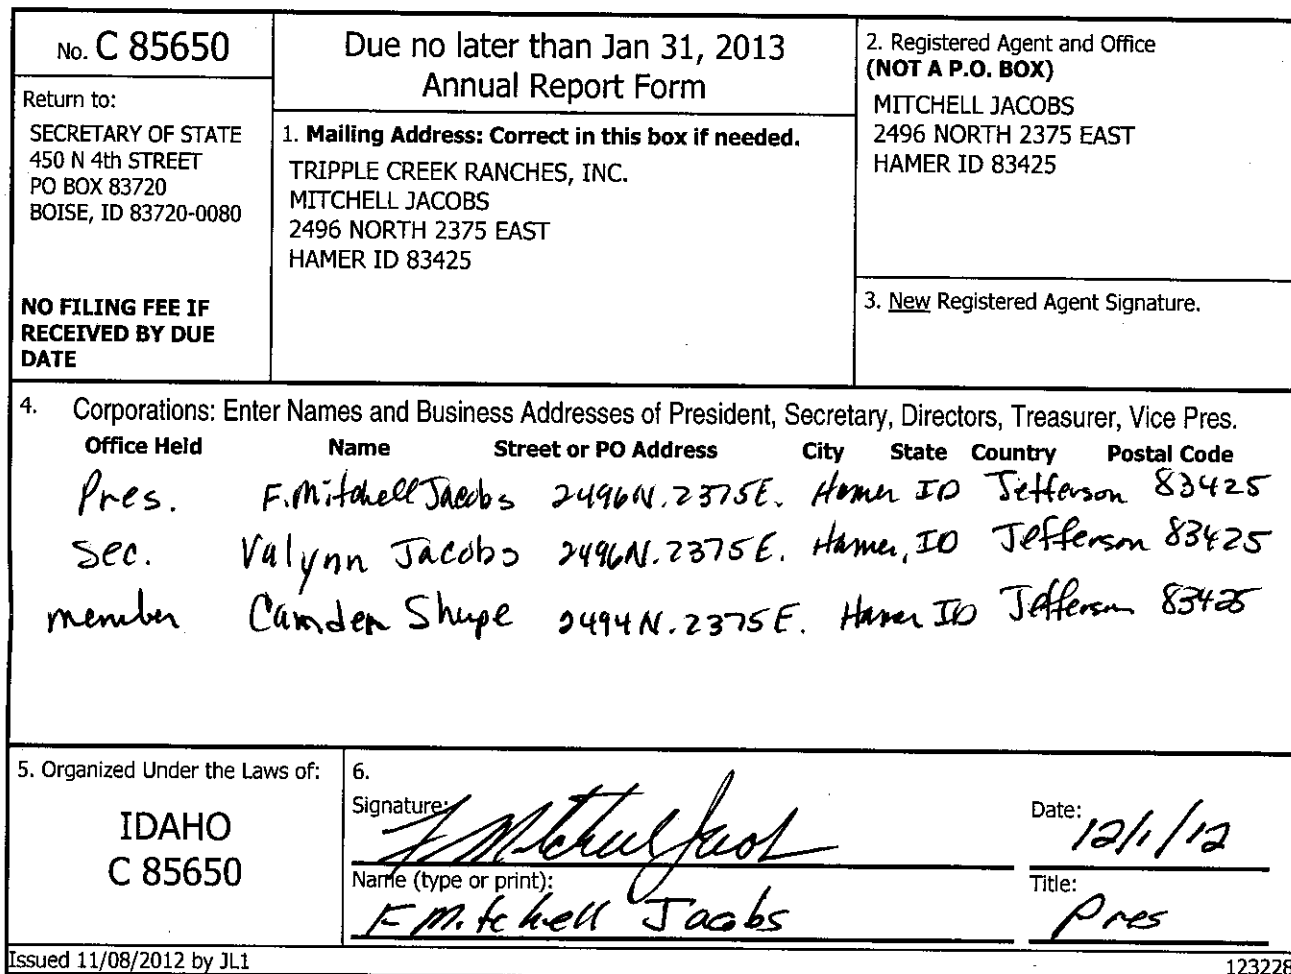 No. C 85650
Return to:
SECRETARY OF STATE
450 N 4th STREET
PO BOX 83720
BOISE, ID 83720-0080
NO FILING FEE IF
RECEIVED BY DUE
DATE
Due no later than Jan 31, 2013
Annual Report Form
1. Mailing Address: Correct in this box if needed.
TRIPPLE CREEK RANCHES, INC.
MITCHELL JACOBS
2496 NORTH 2375 EAST
HAMER ID 83425
2. Registered Agent and Office
(NOT A P.O. BOX)
MITCHELL JACOBS
2496 NORTH 2375 EAST
HAMER ID 83425
3. New Registered Agent Signature.
4. Corporations: Enter Names and Business Addresses of President, Secretary, Directors, Treasurer, Vice Pres.
Office Held Name Street or PO Address City State Country Postal Code
Pres. F. Mitchell Jacobs 2496 N. 2375 E. Hamer ID Jefferson 83425
Sec. Valynn Jacobs 2496 N. 2375 E. Hamer, ID Jefferson 83425
member Camden Shupe 2494 N. 2375 E. Hamer ID Jefferson 83425
5. Organized Under the Laws of:
IDAHO
C 85650
6.
Signature: F Mitchell Jacob
Date: 12/1/12
Name (type or print):
F Mitchell Jacobs
Title:
Pres
Issued 11/08/2012 by JL1
123228